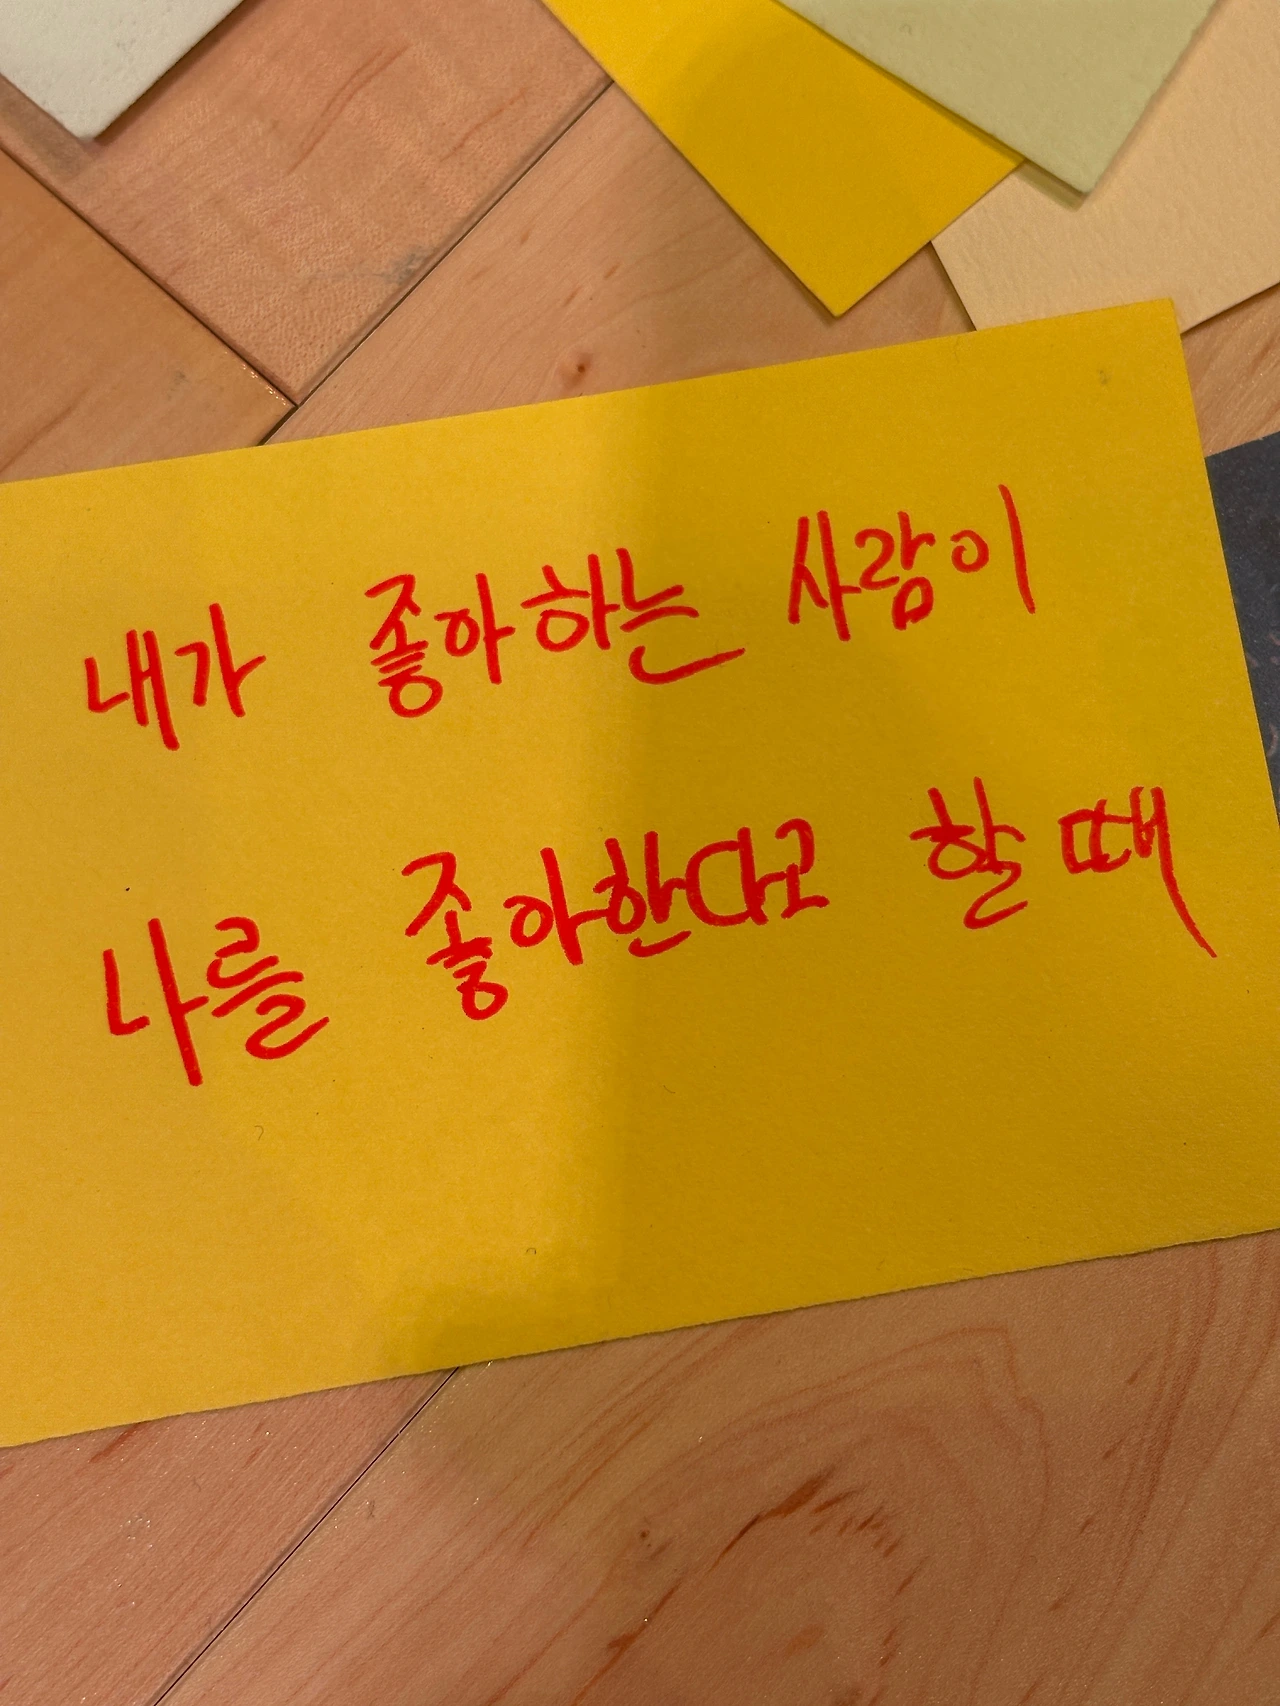 내가 좋아하는 사람이
나를 좋아한다고 할 때